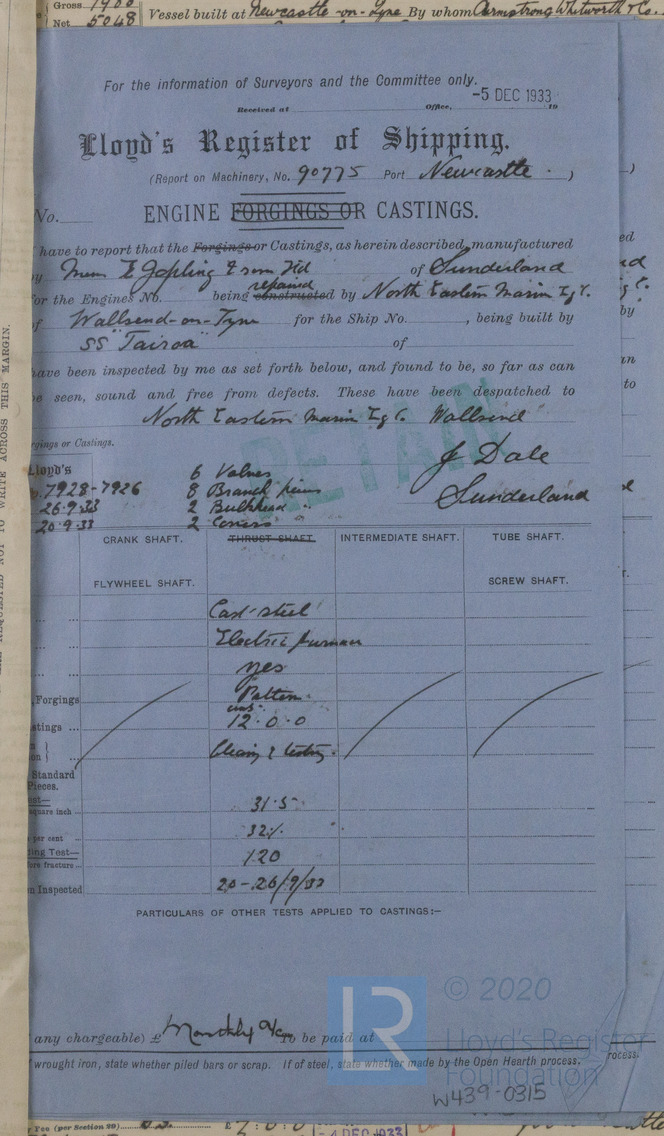 Gross 1988
Net 5048
Vessel built at Newcastle-on-Tyne By whom Armstrong Whitworth & Co.
For the information of Surveyors and the Committee only.
Received at Office, -5 DEC 1933 19
Lloyd's Register of Shipping.
(Report on Machinery, No. 90775 Port Newcastle.)
No.
ENGINE FORGINGS OR CASTINGS.
have to report that the Forgings or Castings, as herein described, manufactured
by E Jopling & Sons Ltd of Sunderland
for the Engines No. being constructed repaired by North Eastern Marine Eg Co.
of Wallsend-on-Tyne for the Ship No. , being built by
SS "Tairoa" of
have been inspected by me as set forth below, and found to be, so far as can
be seen, sound and free from defects. These have been despatched to
North Eastern Marine Eg Co. Wallsend
RETAIN
rgings or Castings.
J Dale
Sunderland
Lloyd's
No. 7928-7926
26.9.33
20.9.33
6 Valves
8 Branch pieces
2 Bulkhead "
2 Covers
CRANK SHAFT. THRUST SHAFT. INTERMEDIATE SHAFT. TUBE SHAFT.
FLYWHEEL SHAFT. SCREW SHAFT.
Cast steel
Electric furnace
yes
, Forgings Pattern
astings ... cwts. 12.0.0
on } ... Cleaning & testing
Standard
Pieces.
ent—
square inch 31.5
per cent 32%
ding Test— 120
fore fracture
n Inspected 20-26/9/33
PARTICULARS OF OTHER TESTS APPLIED TO CASTINGS:—
any chargeable) £ Monthly a/c To be paid at
wrought iron, state whether piled bars or scrap. If of steel, state whether made by the Open Hearth process.
rocess.
LR
© 2020
Lloyd's Register
Foundation
W439-0315
Fee (per Section 29) £
-4 DEC 1933